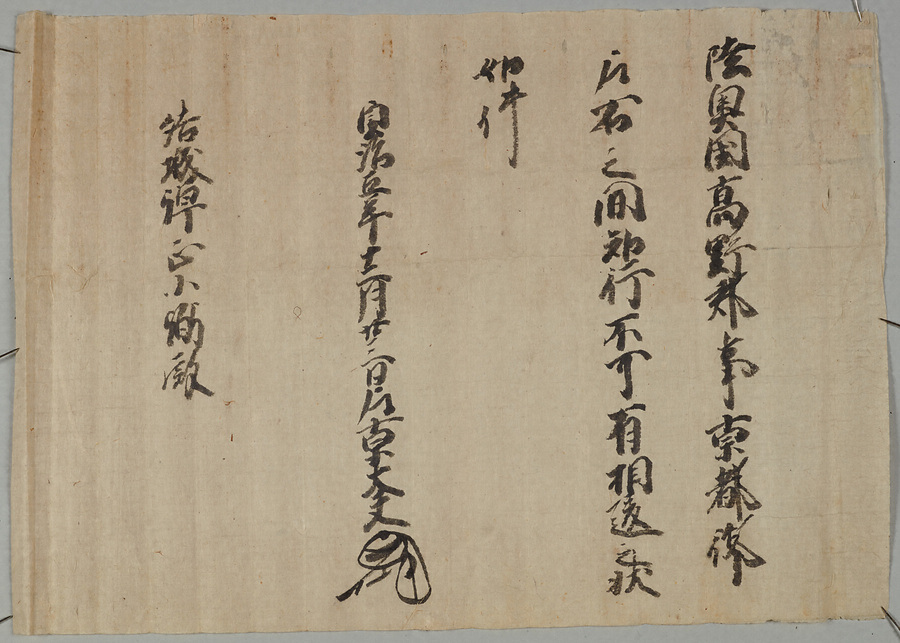 陸奥国高野郡事京都御
左右之間知行不可有相違之状
如件
貞治五年十二月廿二日左京大夫
結城弾正少弼殿